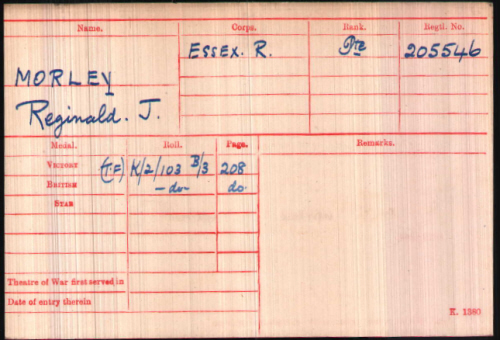 Name. Corps. Rank. Regtl. No.
ESSEX. R. Pte 205546
MORLEY
Reginald. J.
Medal. Roll. Page. Remarks.
VICTORY (T.F) K/2/103 B/3 208
BRITISH - do- do.
STAR
Theatre of War first served in
Date of entry therein
K. 1380